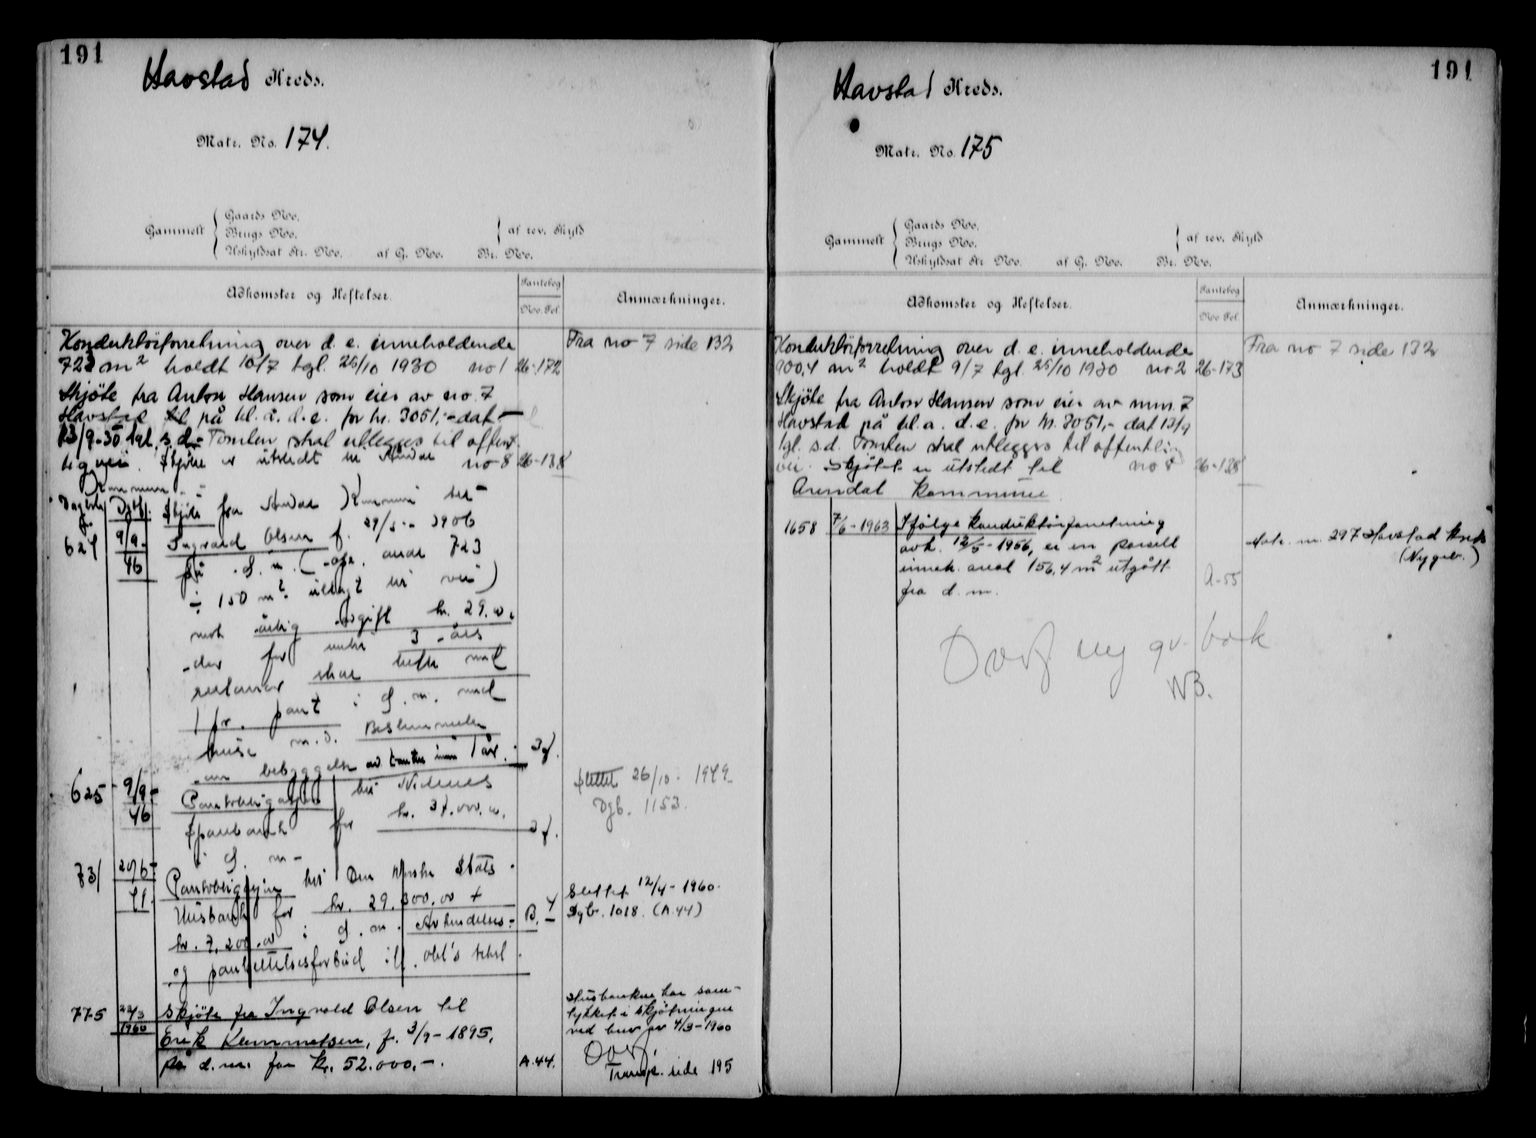 191
Havstad Kreds.
Matr. No. 174.
Gammelt
Gaards No.
Brugs No.
Uskyldsat Str. No. af G. No. Br. No.
af rev. Skyld
Adkomster og Heftelser.
Pantebog
No. Fol.
Anmærkninger.
Konduktörforretning over d. e. inneholdende
723 m² holdt 10/7 tgl. 25/10 1930 no 1 26-172
Fra no 7 side 132
Skjöte fra Anton Hansen som eier av no. 7
Havstad til på bl. a. d. e. for kr. 3051,- dat
13/9-30 tgl. s.d. Tomten skal utlegges til offent
lig vei. Skjöte er utstedt til Arendal no 8 26-138
Kommune
Dagbog Dgbf. Skjöte fra Arendal Kommune til
624 9/9- 46 Ingvald Olsen f. 29/5- 1906
på d. m. (opr. areal 723
÷ 150 m² utlagt til vei)
mot årlig avgift kr. 29.00,
der for under 3 års
restanser skal hefte med
1 pr. pant i d. m. med
huse m.v. Bestemmelse
om bebyggelse av tomten inn 1 år.
625 9/9- 46 Pantobligasjon til
Sparebank for kr. 37.000.00,
i d. m-
Slettet 26/10- 1949
Dgb. 1153.
731 20/6- 51 Pantobligasjon til Den Norske Stats
Husbank for kr. 29.300,00 +
kr. 7.200.00 i d. m. Avhendelses- B. 4
og pantsettelsesforbud ifl. obl's tekst.
Slettet 12/4-1960.
Dgb. 1018. (A.44)
775 22/3 1960 Skjöte fra Ingvald Olsen til
Erik Klemmetsen, f. 3/9-1895,
på d.m. for kr. 52.000,-. A.44.
Husbanken har sam-
tykket i skjötningen
ved brev av 4/3-1960
Overf.
Transp. side 195
191
Havstad Kreds.
Matr. No. 175
Gammelt
Gaards No.
Brugs No.
Uskyldsat Str. No. af G. No. Br. No.
af rev. Skyld
Adkomster og Heftelser.
Pantebog
No. Fol.
Anmærkninger.
Konduktörforretning over d. e. inneholdende
900,4 m² holdt 9/7 tgl. 25/10 1930 no 2 26-173
Fra no 7 side 132
Skjöte fra Anton Hansen som eier av mnr. 7
Havstad på bl.a. d.e. for kr. 3051,- dat 13/9
tgl. s.d. Tomten skal utlegges til offentlig
vei. Skjötet er utstedt til no 8 26-138
Arendal kommune
1658 7/6-1963 Ifölge konduktörforretning
avh. 12/5-1956, er en parsell
inneh. areal 156,4 m² utgått
fra d. m. A-55
Matr. nr. 297 Havstad kreds
(Nygt.)
Overf ny gr. bok
NB.